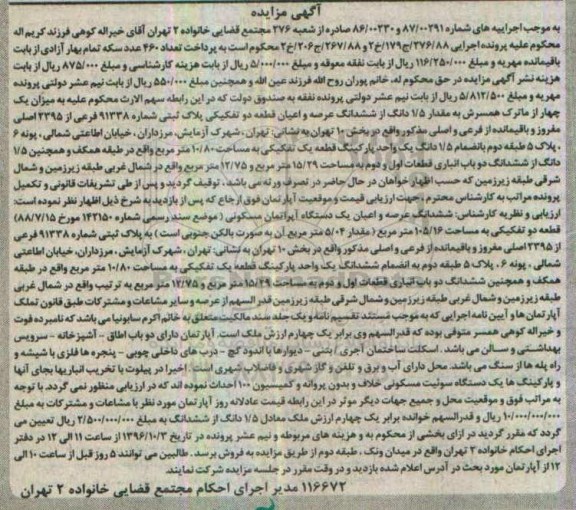 آگهی مزایده
به موجب اجراییه های شماره ۸۷/۰۰۲۹۱ و ۸۶/۰۰۲۳۰ صادره از شعبه ۲۷۶ مجتمع قضایی خانواده ۲ تهران آقای خیراله کوهی فرزند کریم اله
محکوم علیه پرونده اجرایی ۲۷۶/۸۸/ج۱۷۹/خ۲ و ۲۶۷/۸۸/ج۲۰۶/خ۲ محکوم است به پرداخت تعداد ۴۶۰ عدد سکه تمام بهار آزادی از بابت
باقیمانده مهریه و مبلغ ۱۱۶/۲۵۰/۰۰۰ ریال از بابت نفقه معوقه و مبلغ ۵/۰۰۰/۰۰۰ ریال از بابت هزینه کارشناسی و مبلغ ۸۷۵/۰۰۰ ریال از بابت
هزینه نشر آگهی مزایده در حق محکوم له، خانم پوران روح الله فرزند عین الله و همچنین مبلغ ۵۵۰/۰۰۰ ریال از بابت نیم عشر دولتی پرونده
مهریه و مبلغ ۵/۸۱۲/۵۰۰ ریال از بابت نیم عشر دولتی پرونده نفقه به صندوق دولت که در این رابطه سهم الارث محکوم علیه به میزان یک
چهار از ماترک همسرش به مقدار ۱/۵ دانگ از ششدانگ عرصه و اعیان قطعه دو تفکیکی پلاک ثبتی شماره ۹۱۳۳۸ فرعی از ۲۳۹۵ اصلی
مفروز و باقیمانده از فرعی و اصلی مذکور واقع در بخش ۱۰ تهران به نشانی: تهران، شهرک آزمایش، مرزداران، خیابان اطاعتی شمالی، پونه ۶
، پلاک ۵ طبقه دوم بانضمام ۱/۵ دانگ یک واحد پارکینگ قطعه یک تفکیکی به مساحت ۱۰/۸۰ متر مربع واقع در طبقه همکف و همچنین ۱/۵
دانگ از ششدانگ دو باب انباری قطعات اول و دوم به مساحت ۱۵/۲۹ متر مربع و ۱۲/۷۵ متر مربع واقع در شمال غربی طبقه زیرزمین و شمال
شرقی طبقه زیرزمین که حسب اظهار خواهان در حال حاضر در تصرف ورثه می باشد، توقیف گردید و پس از طی تشریفات قانونی و تکمیل
پرونده مراتب به کارشناس محترم، جهت ارزیابی قیمت و موقعیت آپارتمان فوق ارجاع که پس از بازدید به شرح ذیل اظهار نظر نموده است:
ارزیابی و نظریه کارشناس: ششدانگ عرصه و اعیان یک دستگاه آپراتمان مسکونی (موضع سند رسمی شماره ۱۴۳۱۵۰ مورخ ۸۸/۷/۱۵)
قطعه دو تفکیکی به مساحت ۱۰۵/۱۶ متر مربع (مقدار ۵/۰۴ متر مربع آن به صورت بالکن جنوبی است) به پلاک ثبتی شماره ۹۱۳۳۸ فرعی
از ۲۳۹۵ اصلی مفروز و باقیمانده از فرعی و اصلی مذکور واقع در بخش ۱۰ تهران به نشانی: تهران، شهرک آزمایش، مرزداران، خیابان اطاعتی
شمالی، پونه ۶ ، پلاک ۵ طبقه دوم به انضمام ششدانگ یک واحد پارکینگ قطعه یک تفکیکی به مساحت ۱۰/۸۰ متر مربع واقع در طبقه
همکف و همچنین ششدانگ دو باب انباری قطعات اول و دوم به مساحت ۱۵/۲۹ متر مربع و ۱۲/۷۵ متر مربع به ترتیب واقع در شمال غربی
طبقه زیرزمین و شمال غربی طبقه زیرزمین و شمال شرقی طبقه زیرزمین قدر السهم از عرصه و سایر مشاعات و مشترکات طبق قانون تملک
آپارتمان ها و آیین نامه اجرایی که به موجب مستند تقسیم نامه و یک جلد سند مالکیت متعلق به خانم اکرم سابونیا می باشد که نامبرده فوت
و خیراله کوهی همسر متوفی بوده که قدرالسهم وی برابر یک چهارم ارزش ملک است. آپارتمان دارای دو باب اطاق - آشپزخانه - سرویس
بهداشتی و سالن می باشد. اسکلت ساختمان آجری / بتنی - دیوارها با اندود گچ - درب های داخلی چوبی - پنجره ها فلزی با شیشه و
راه پله ها از سنگ می باشد. محل دارای آب و برق و تلفن و گاز شهری و فاضلاب شهری است. اخیرا در پیلوت با تخریب انباریها بجای آنها
و پارکینگ ها یک دستگاه سوئیت مسکونی خلاف و بدون پروانه و کمیسیون ۱۰۰ احداث نموده اند که در ارزیابی منظور نمی گردد. با توجه
به مراتب فوق و موقعیت محل و جمیع جهات دیگر موثر در این رابطه قیمت عادلانه روز آپارتمان مورد نظر با مشاعات و مشترکات به مبلغ
۱۰/۰۰۰/۰۰۰/۰۰۰ ریال و قدرالسهم خوانده برابر یک چهارم ارزش ملک معادل ۱/۵ دانگ از ششدانگ به مبلغ ۲/۵۰۰/۰۰۰/۰۰۰ ریال تعیین می
گردد که مقرر گردید در ازای بخشی از محکوم به و هزینه های مربوطه و نیم عشر پرونده در تاریخ ۱۳۹۶/۱۰/۳ از ساعت ۱۱ الی ۱۲ در دفتر
اجرای احکام خانواده ۲ تهران واقع در میدان ونک، طبقه دوم از طریق مزایده به فروش برسد. طالبین می توانند ۵ روز قبل از ساعت ۱۰ الی
۱۲ از آپارتمان مورد بحث در آدرس اعلام شده بازدید و در وقت مقرر در جلسه مزایده شرکت نمایند.
۱۱۶۶۷۲ مدیر اجرای احکام مجتمع قضایی خانواده ۲ تهران